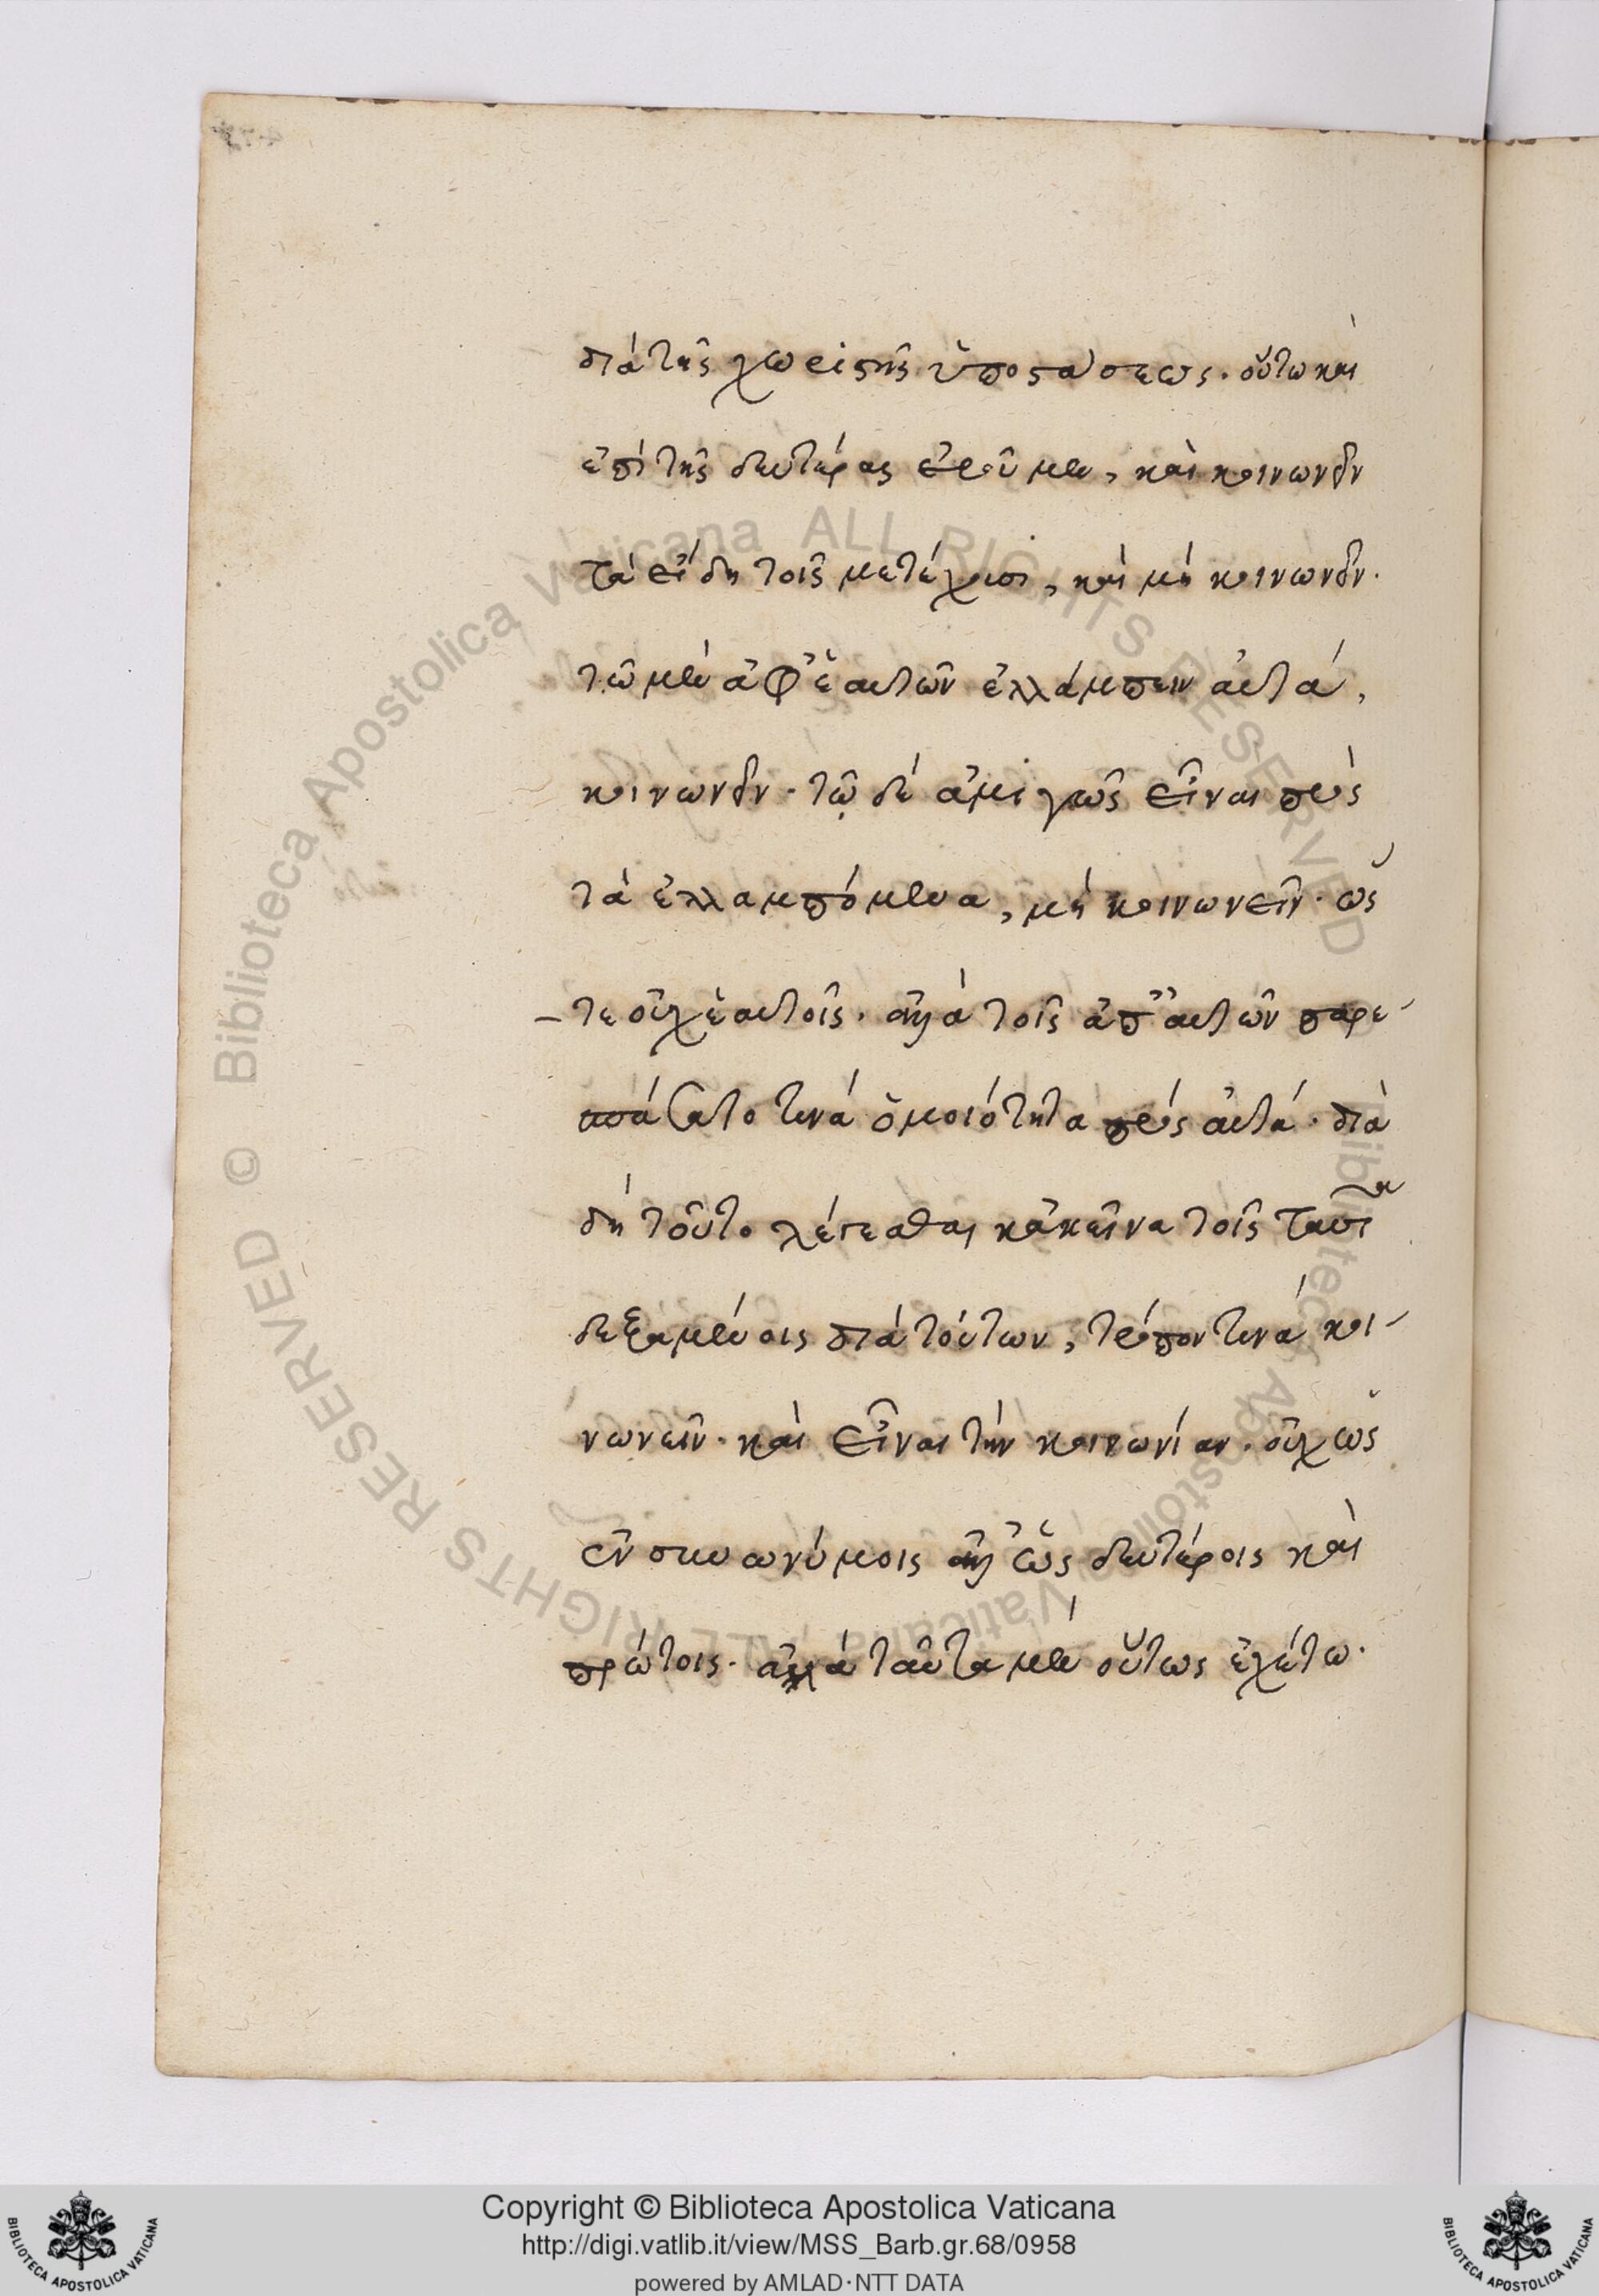 διὰ τῆς χωριστῆς ὑποστάσεως. οὕτω καὶ
ἐπὶ τῆς δευτέρας ἐροῦμεν, καὶ κοινωνεῖν
τὰ εἴδη τοῖς μετέχουσι, καὶ μὴ κοινωνεῖν.
τῷ μὲν ἀφ' ἑαυτῶν ἐλλάμπειν αὐτά,
κοινωνεῖν. τῷ δὲ ἀμιγῶς εἶναι πρὸς
τὰ ἐλλαμπόμενα, μὴ κοινωνεῖν. ὥς
τε οὐχ ἑαυτοῖς. ἀλλὰ τοῖς ἀπ' αὐτῶν παρε
σπάσατο τινὰ ὁμοιότητα πρὸς αὐτά. διὰ
δὴ τοῦτο λέγεσθαι κἀκεῖνα τοῖς ταῦτα
δεξαμένοις διὰ τούτων, τρόπον τινὰ κοι
νωνεῖν. καὶ εἶναι τὴν κοινωνίαν. οὐχ ὡς
ἐν συνωνύμοις ἀλλ' ὡς δευτέροις καὶ
πρώτοις. ἀλλὰ ταῦτα μὲν οὕτως ἐχέτω.
© Biblioteca Apostolica Vaticana ALL RIGHTS RESERVED
© Biblioteca Apostolica Vaticana ALL RIGHTS RESERVED
Copyright © Biblioteca Apostolica Vaticana
http://digi.vatlib.it/view/MSS_Barb.gr.68/0958
powered by AMLAD·NTT DATA
BIBLIOTECA APOSTOLICA VATICANA
BIBLIOTECA APOSTOLICA VATICANA